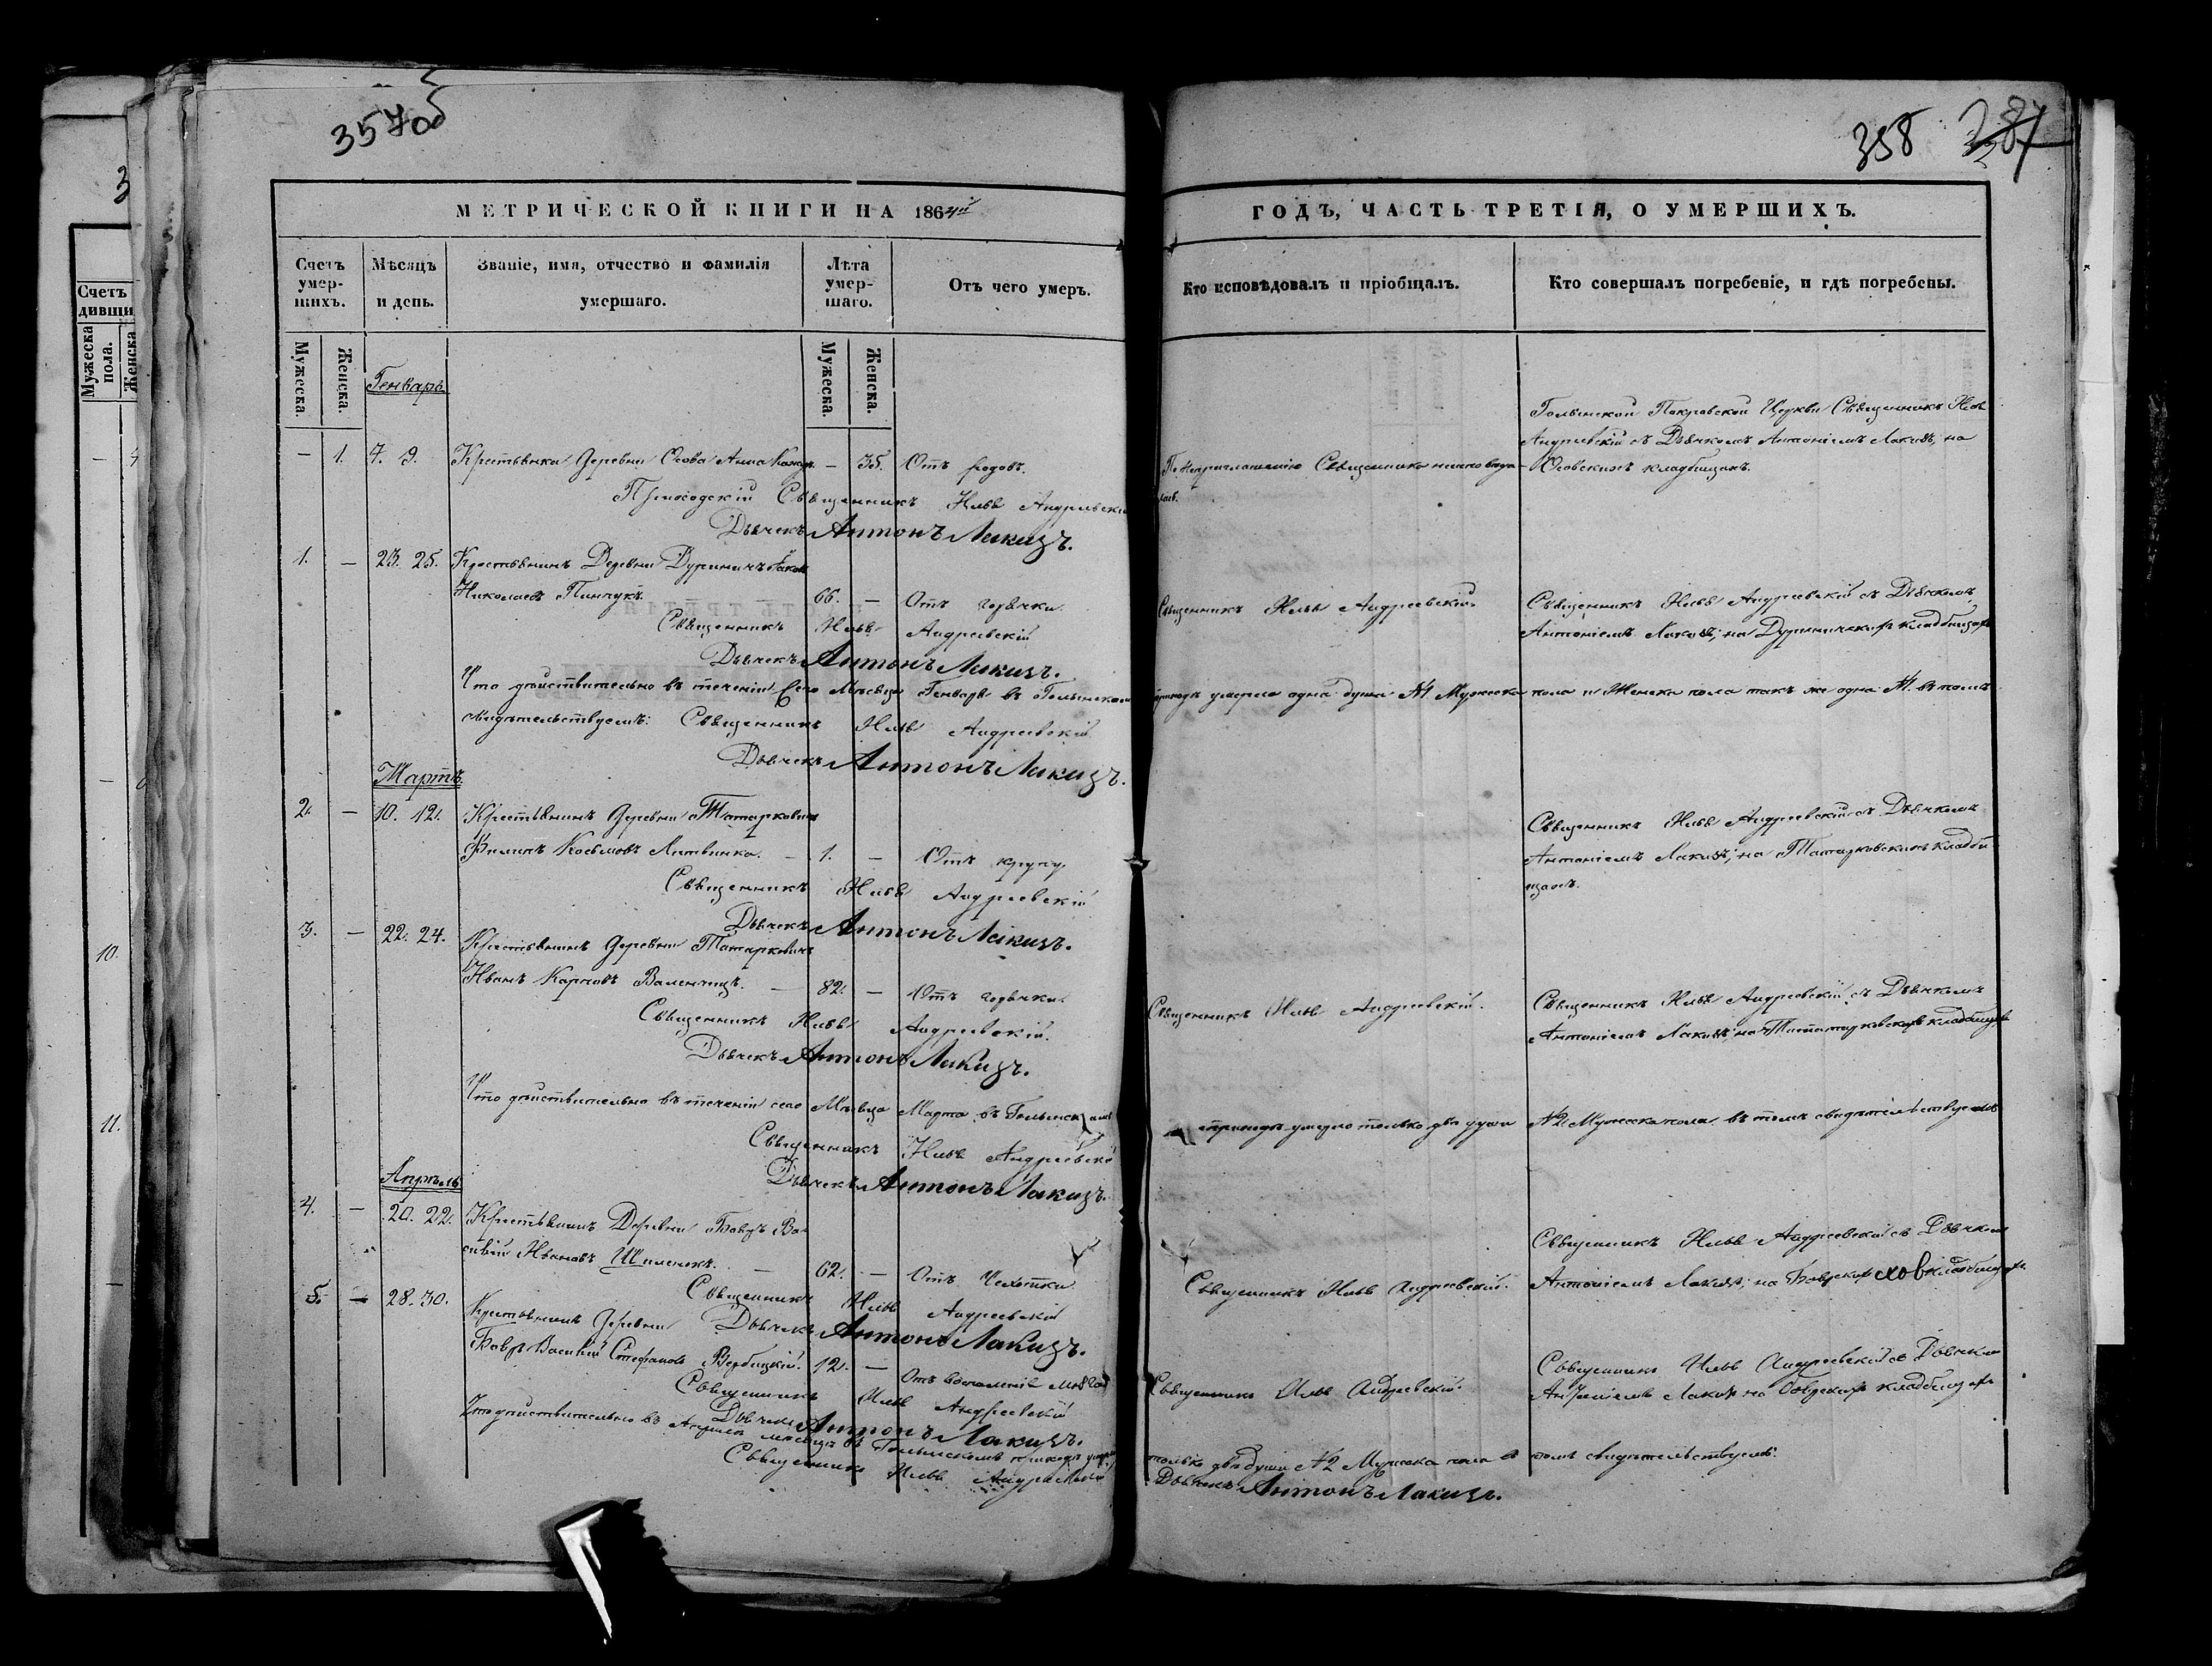 357об
358 287
МЕТРИЧЕСКОЙ КНИГИ НА 1864й
ГОДЪ, ЧАСТЬ ТРЕТІЯ, О УМЕРШИХЪ.
Счетъ умер-шихъ.
Мѣсяцъ и день.
Званіе, имя, отчество и фамилія умершаго.
Лѣта умер-шаго.
Отъ чего умеръ.
Кто исповѣдовалъ и пріобщалъ.
Кто совершалъ погребеніе, и гдѣ погребены.
Мужеска. Женска.
Мужеска. Женска.
Генварь
Голынской Покровской Церкви Священникъ Илья
Андреевскій съ Дьячкомъ Антоніемъ Лакизъ, на
Осовскихъ кладбищахъ.
— 1. 7. 9. Крестьянка Деревни Осова Анна — 35. Отъ родовъ.
Приходскій Священникъ Илья Андреевскій
Дьячекъ Антонъ Лакизъ.
1. — 23. 25. Крестьянинъ Деревни Дуриничъ
Николаевъ Пинчукъ. 66. — Отъ горячки.
Священникъ Илья Андреевскій.
Священникъ Илья Андреевскій съ Дьячкомъ
Антоніемъ Лакизъ; на Дуриничскихъ кладбищахъ
Священникъ Илья Андреевскій
Дьячекъ Антонъ Лакизъ.
Что дѣйствительно въ теченіи сего Мѣсяца Генваря въ Голынскомъ
приходѣ умерло одна душа №1 Мужеска пола и Женска пола такъ же одна №1. въ томъ
свидѣтельствуемъ: Священникъ Илья Андреевскій
Дьячекъ Антонъ Лакизъ.
Мартъ
2. — 10. 12. Крестьянинъ Деревни Татарковичъ
Филипъ Косьмовъ Литвинко. — 1. — Отъ крупу.
Священникъ Илья Андреевскій съ Дьячкомъ
Антоніемъ Лакизъ; на Татарковскихъ кладби-
щахъ.
Священникъ Илья Андреевскій
Дьячекъ Антонъ Лакизъ.
3. — 22. 24. Крестьянинъ Деревни Татарковичъ
Иванъ Карповъ Валентицъ. — 82. — Отъ горячки.
Священникъ Илья Андреевскій.
Священникъ Илья Андреевскій съ Дьячкомъ
Антоніемъ Лакизъ; на кладбищахъ
Священникъ Илья Андреевскій.
Дьячекъ Антонъ Лакизъ.
Что дѣйствительно въ теченіи сего Мѣсяца Марта въ Голынскомъ
приходѣ умерло только двѣ души №2 Мужеска пола въ томъ свидѣтельствуемъ
Священникъ Илья Андреевскій
Дьячекъ Антонъ Лакизъ.
Апрѣль
4. — 20. 22. Крестьянинъ Деревни Ва-
силій Ивановъ Шпиленокъ. — 62. — Отъ Чахотки
Священникъ Илья Андреевскій.
Священникъ Илья Андреевскій съ Дьячкомъ
Антоніемъ Лакизъ; на кладбищахъ.
Священникъ Илья Андреевскій
Дьячекъ Антонъ Лакизъ.
5. — 28. 30. Крестьянинъ Деревни
Василій Стефановъ Вербицкій. 12. — Отъ воспаленія
Священникъ Илья Андреевскій.
Священникъ Илья Андреевскій съ Дьячкомъ
Антоніемъ Лакизъ на кладбищахъ
Священникъ Илья Андреевскій
Дьячекъ Антонъ Лакизъ.
Что дѣйствительно въ Апрѣлѣ мѣсяцѣ въ Голынскомъ приходѣ умерло
только двѣ души №2 Мужеска пола въ томъ свидѣтельствуемъ:
Священникъ Илья Андреевскій
Дьячекъ Антонъ Лакизъ.
Счетъ
Мужеска пола.
Женска
10.
11.